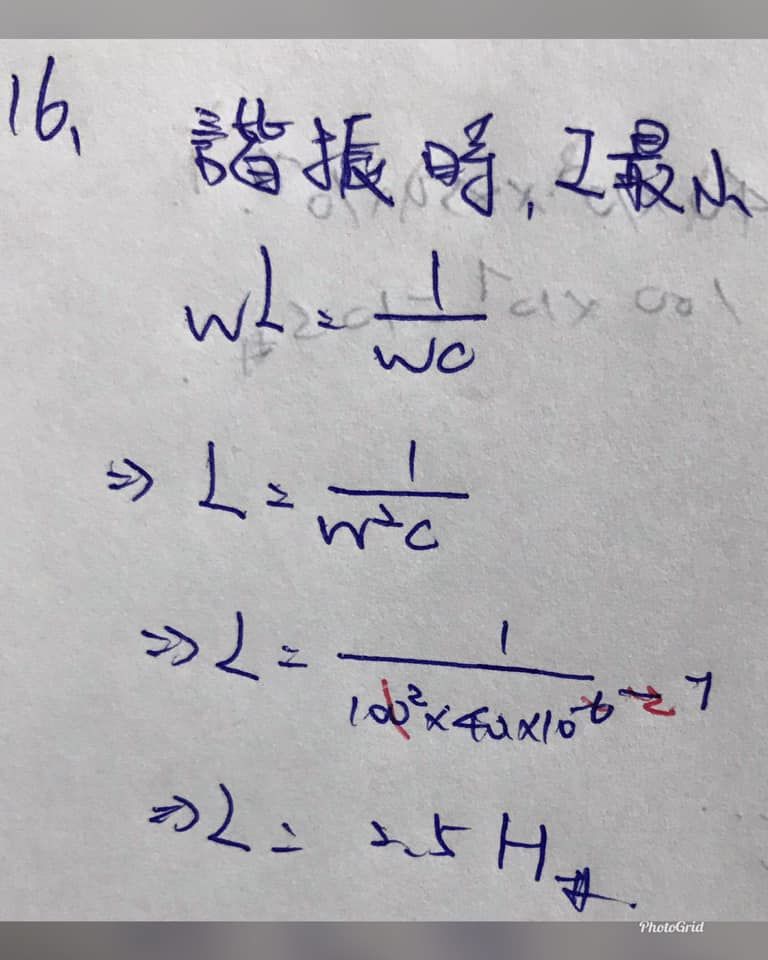 16.
諧振時, Z最小
wL = 1/wC
⇒ L = 1/w²C
⇒ L = 1/100²×40×10⁻⁶
⇒ L = 2.5 H #
PhotoGrid